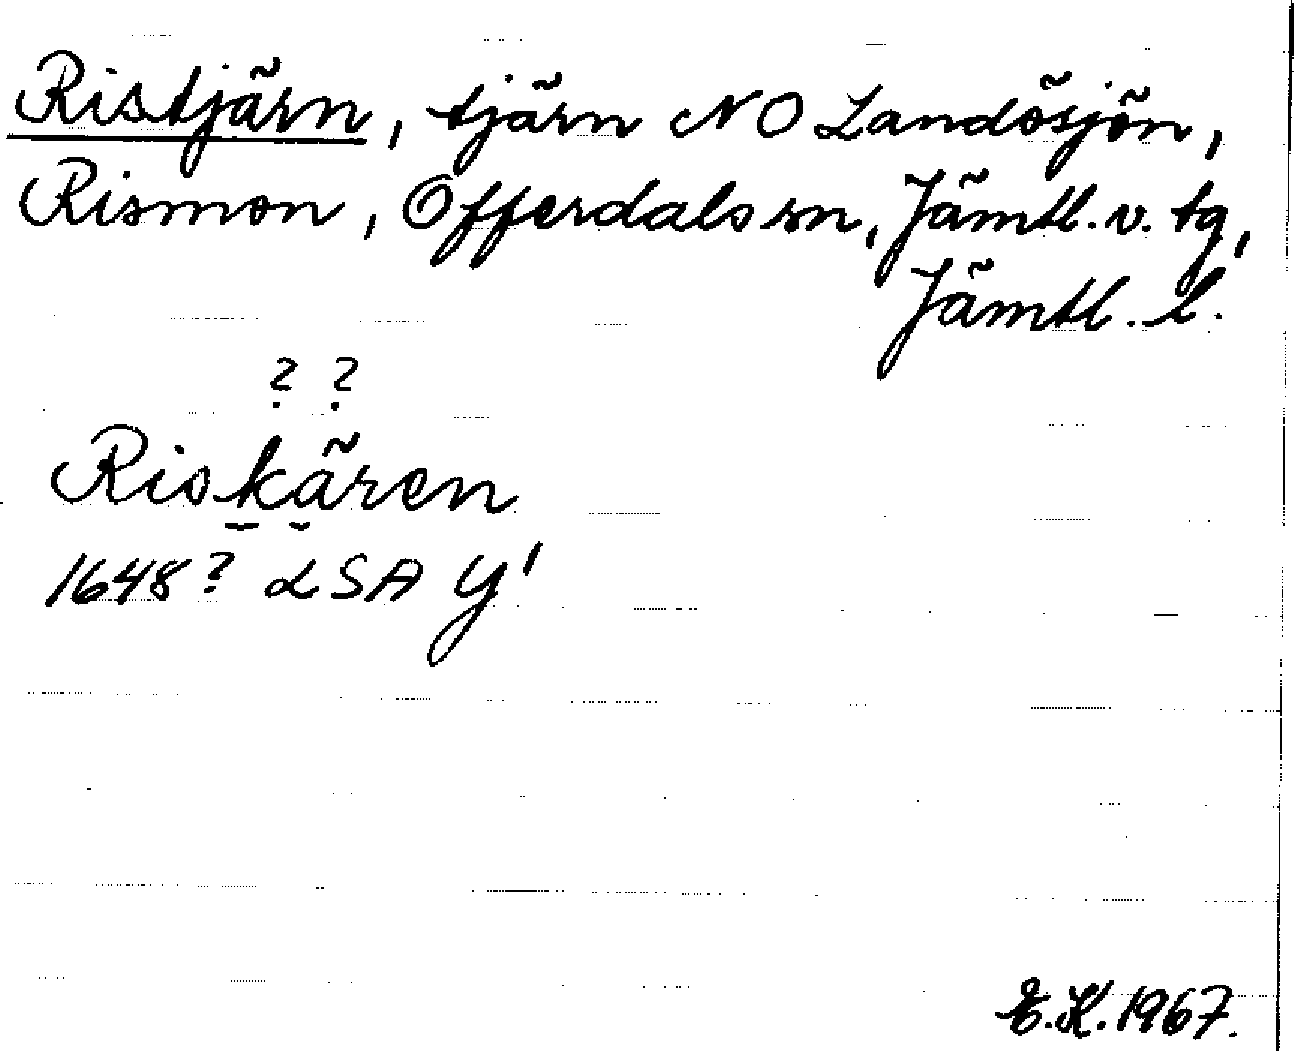 Ristjärn, tjärn NO Landösjön,
Rismon, Offerdals sn, Jämtl. v. tg,
Jämtl. l.
? ?
Riskären
1648? LSA Y¹
E.K. 1967.